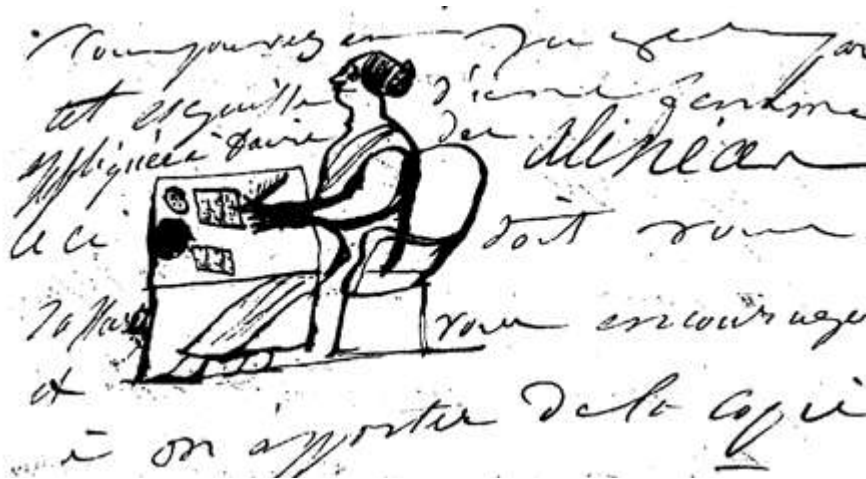 Vous pouvez en juger par
cet esquisse d'une femme
appliquée à faire des Alinéas
ceci doit vous
vous encourager
et
à m'apporter de la copie